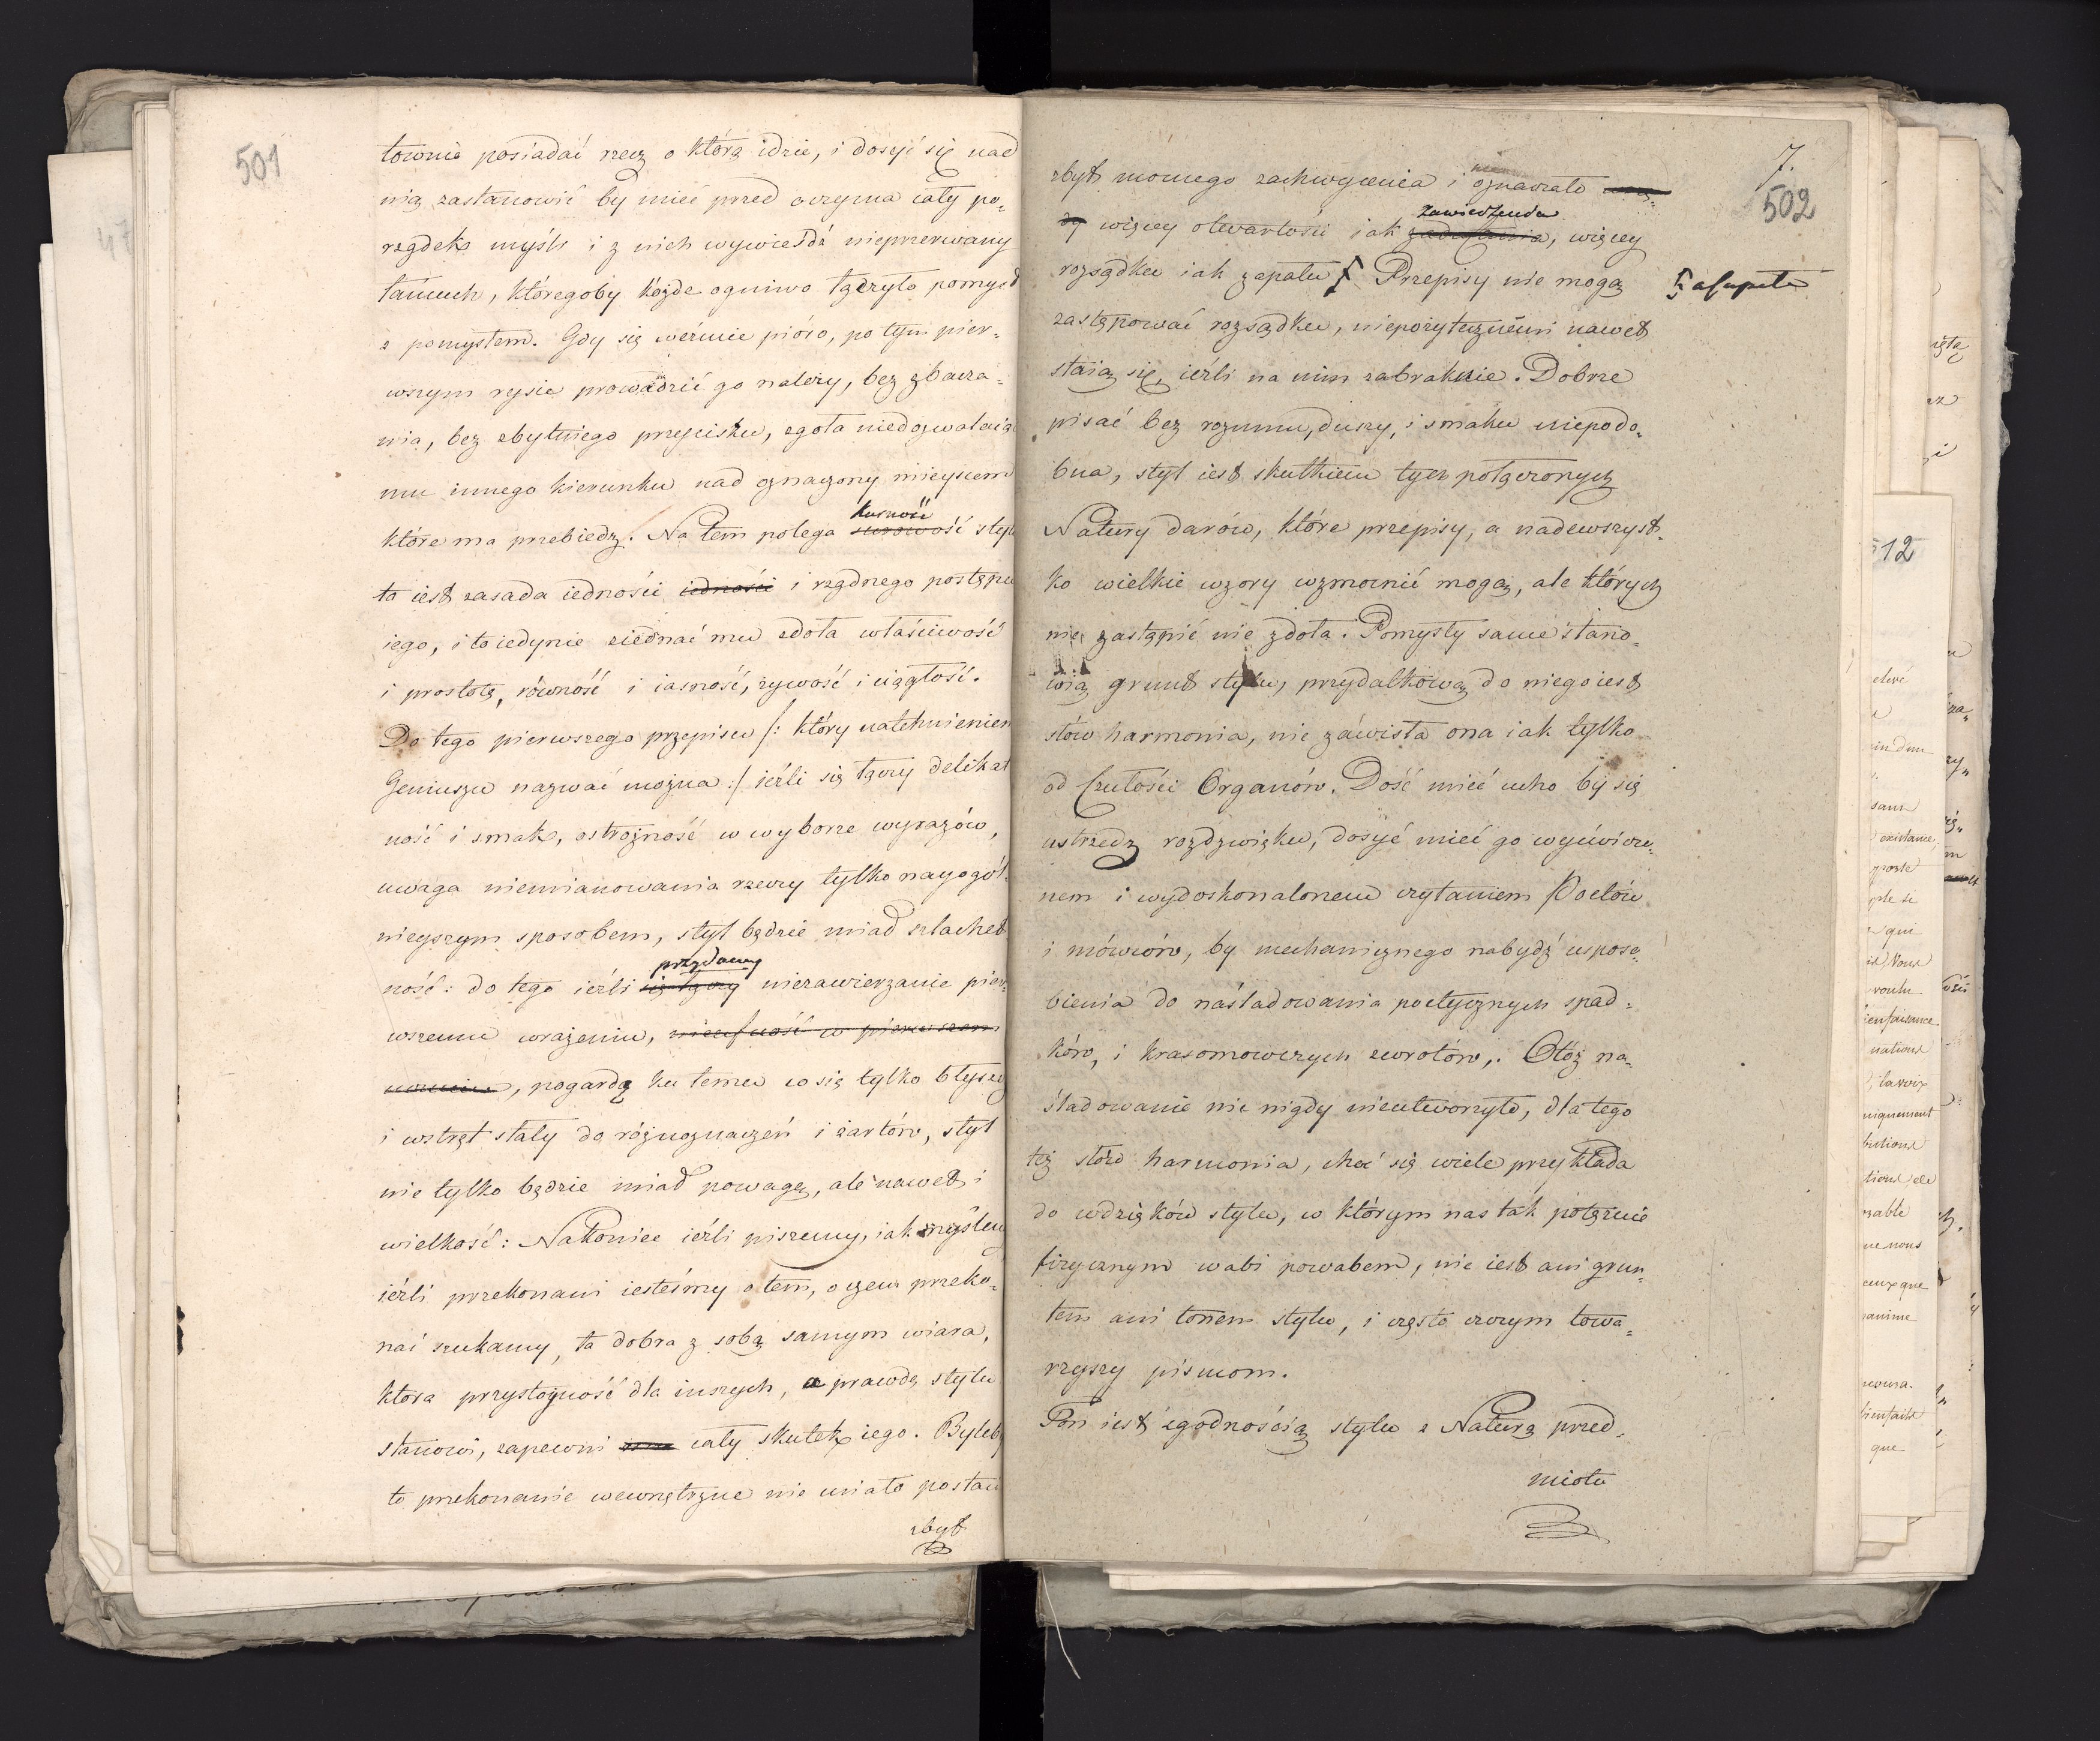 501
townie posiadać rzecz o którą idzie, i dosyć się nad
nią zastanowić by mieć przed oczyma cały po„
rządek myśli i z nich wywieśdź nieprzerwany
łańcuch, któregoby kożde ogniwo łączyło pomysł
z pomysłem. Gdy się weźmie pióro, po tym pier„
wszym rysie prowadzić go należy, bez zbacza„
nia, bez zbytniego przycisku, zgoła niedozwalaiąc
mu innego kierunku nad oznaczony mieyscem
które ma przebiedz. Na tem polega surowość styl
to iest zasada iedności iedności i rządnego postępu
iego, i to iedynie ziednać mu zdoła właściwość
i prostotę, równość i iasność, żywość i ciągłość.
Do tego pierwszego przepisu /: który natchnieniem
Geniuszu nazwać można :/ ieźli się łączy delikat
ność i smak, ostrożność w wyborze wyrazów,
uwaga niemianowania rzeczy tylko nayogół„
nieyszym sposobem, styl będzie miał szlachet
przydamy
ność: do tego ieźli się łączy niezawierzanie pier„
wszemu wrażeniu, nieufność w pierwszem
, pogardę ku temu co się tylko błyszczy
i wstręt stały do różnoznaczeń i żartów, styl
nie tylko będzie miał powagę, ale nawet i
wielkość: Nakoniec ieźli piszemy, iak myślemy
ieźli przekonani iesteśmy o tem, o czem przeko„
nać szukamy, ta dobra z sobą samym wiara,
która przystoyność dla inszych, a prawdę stylu
stanowi, zapewni cały skutek iego. Byleby
to przekonanie wewnętrzne nie miało postaci
zbyt
7.
502
zbyt mocnego zachwycenia i oznaczało
zawiedzenia
więcey otwartości iak zadufania, więcey
rozsądku iak zapału Przepisy nie mogą
a capite
zastępować rozsądku, niepożytecznemi nawet
staią się, ieźli na nim zabraknie. Dobrze
pisać bez rozumu, duszy, i smaku niepodo„
bna, styl iest skutkiem tych połączonych
Natury darów, które przepisy, a nadewszyst„
ko wielkie wzory wzmocnić mogą, ale których
nic zastąpić nie zdoła. Pomysły same stano„
wią grunt stylu, przydatkową do niego iest
słów harmonia, nie zawisła ona iak tylko
od Czułości Organów. Dość mieć ucho by się
ustrzedz rozdzwięku, dosyć mieć go wyćwiczo„
nem i wydoskonalonem czytaniem Poetów
i mówców, by mechanicznego nabydź usposo„
bienia do naśladowania poetycznych spad„
ków, i krasomowczych zwrotów,. Otóż na„
śladowanie nic nigdy nieutworzyło, dla tego
też słów harmonia, choć się wiele przykłada
do wdzięków stylu, w którym nas tak potężnie
fizycznym wabi powabem, nie iest ani grun„
tem ani tonem stylu, i często czczym towa„
rzyszy pismom.
Ton iest zgodnością stylu z Naturą przed„
miotu
512